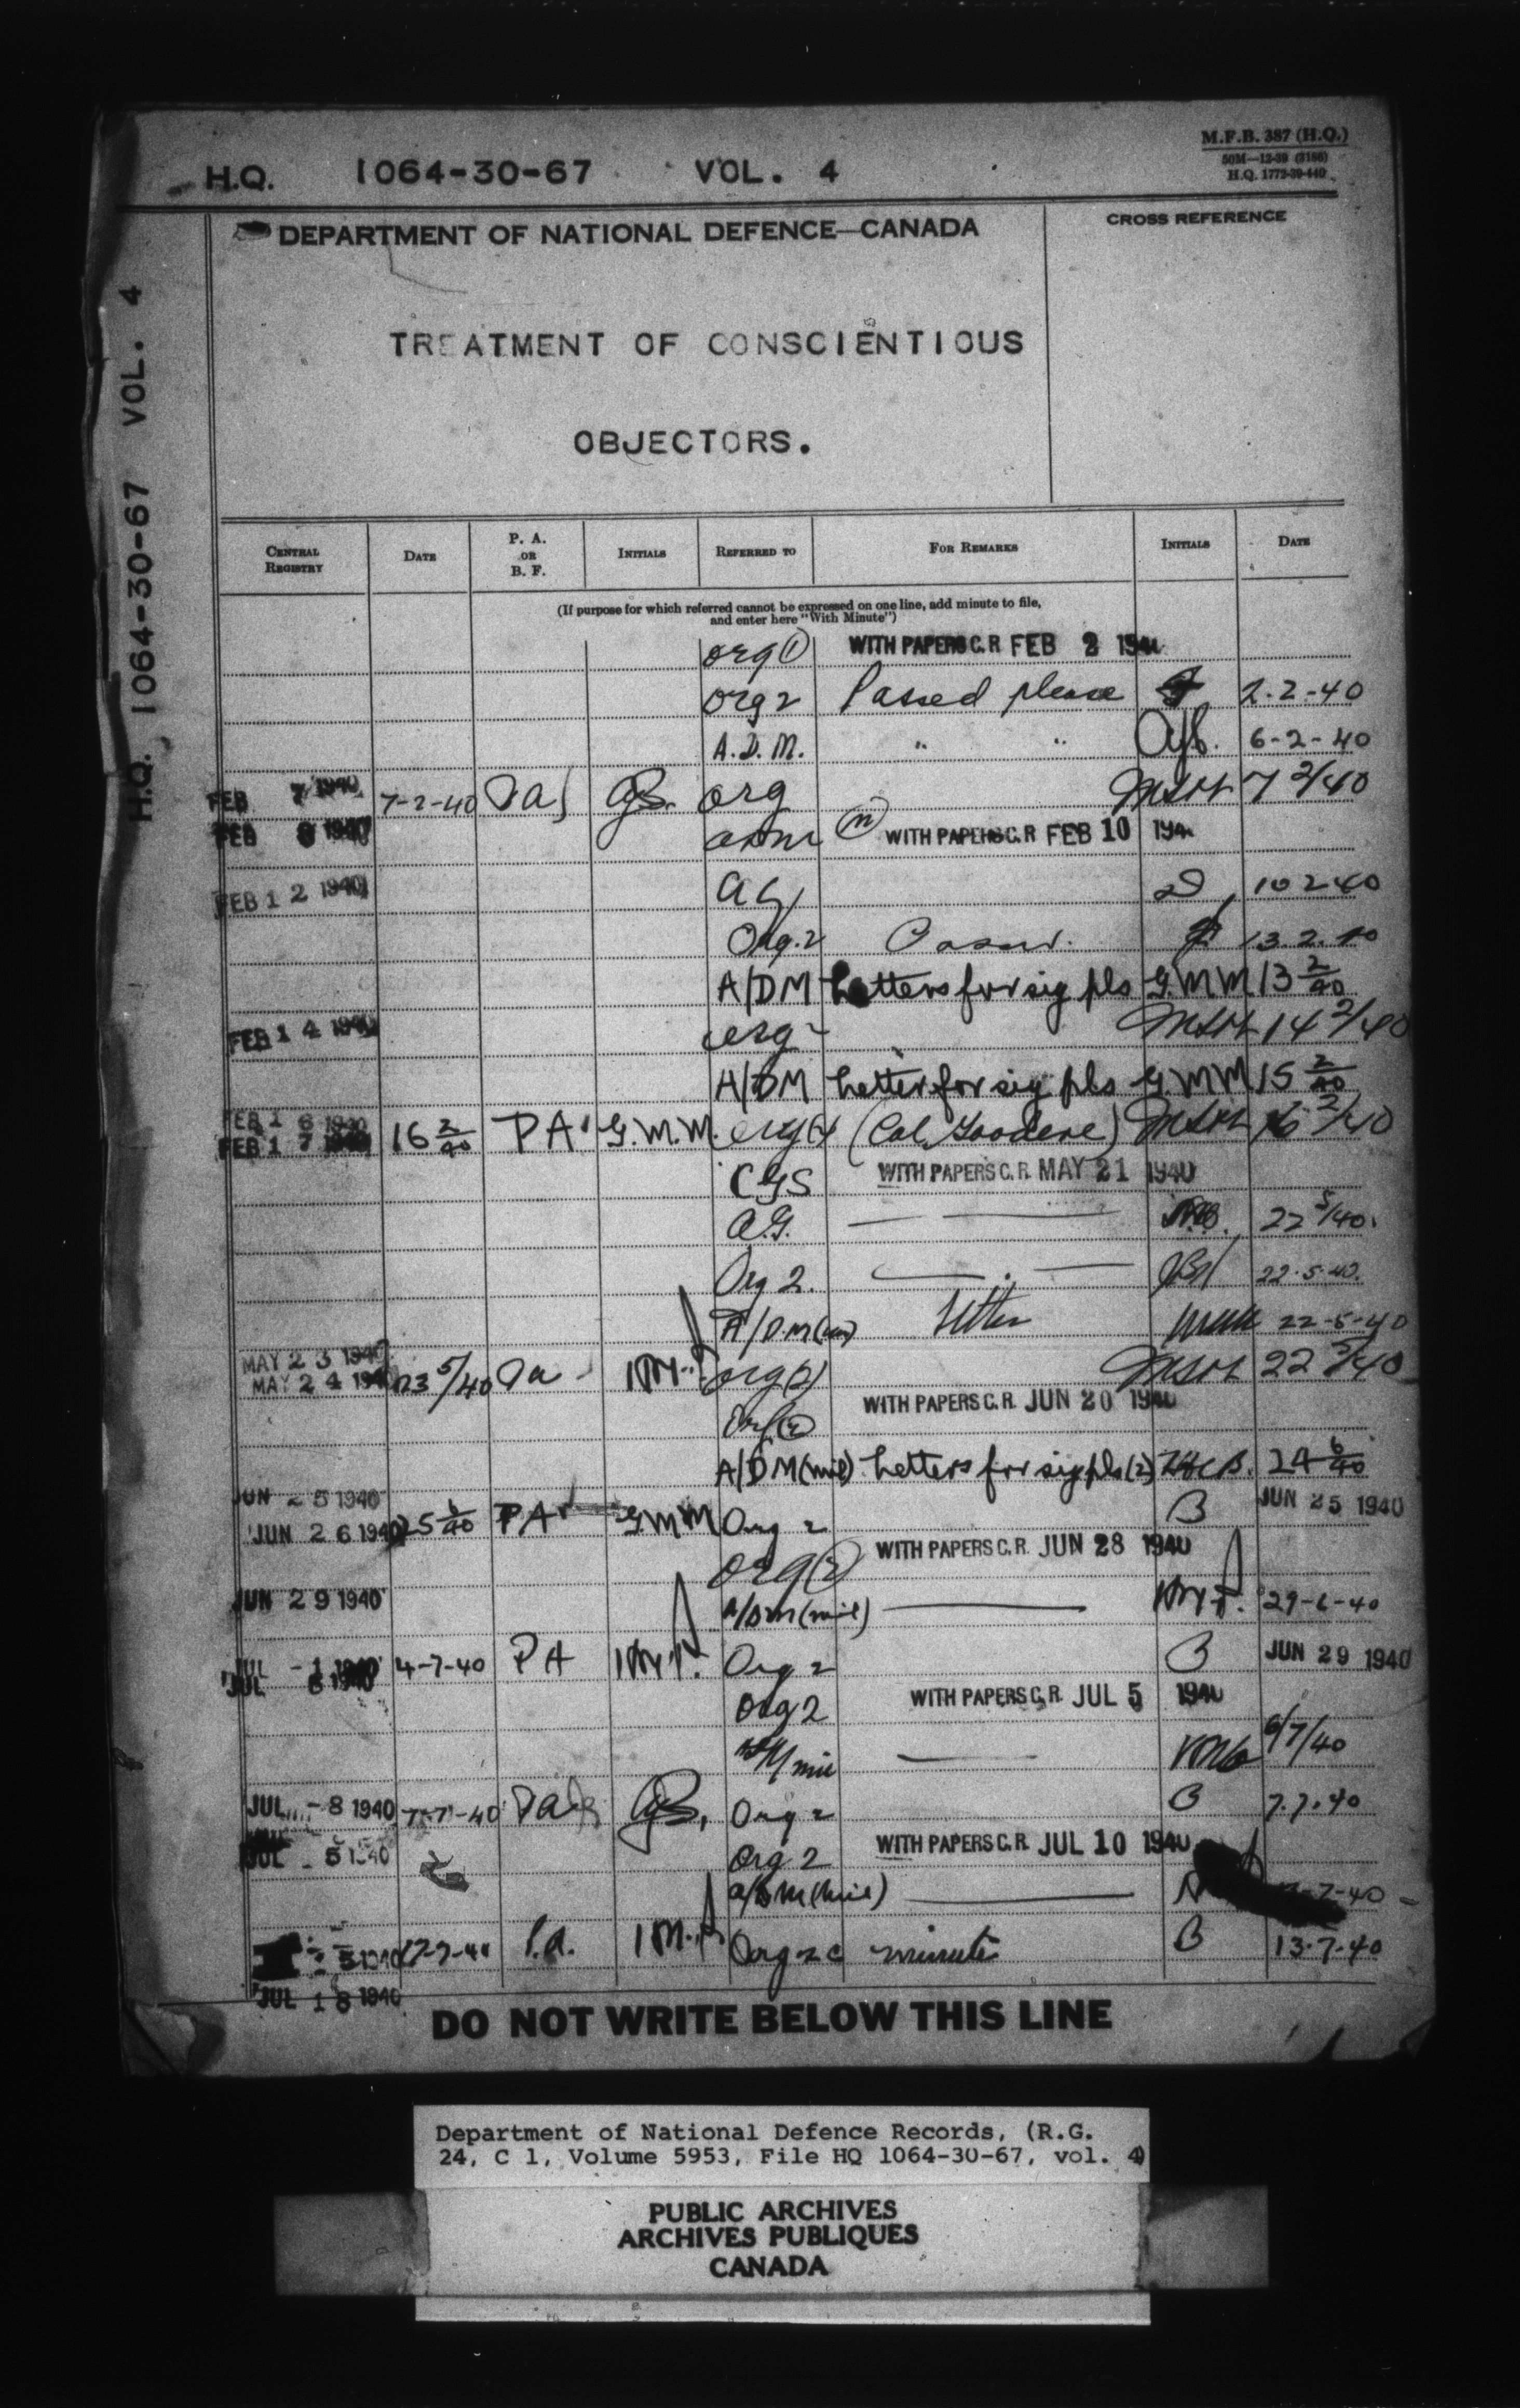 M.F.B. 387 (H.Q.)
50M—12-39 (3186)
H.Q. 1772-39-440
H.Q. 1064-30-67 VOL. 4
H.Q. 1064-30-67 VOL. 4
DEPARTMENT OF NATIONAL DEFENCE—CANADA
CROSS REFERENCE
TREATMENT OF CONSCIENTIOUS
OBJECTORS.
CENTRAL REGISTRY DATE P. A. OR B. F. INITIALS REFERRED TO FOR REMARKS INITIALS DATE
(If purpose for which referred cannot be expressed on one line, add minute to file,
and enter here "With Minute")
org (1) WITH PAPERS C.R. FEB 2 194
org 2 Passed please 2-2-40
A.D.M. " " 6-2-40
FEB 7 1940 7-2-40 Pa org 7 2/40
FEB 1940 WITH PAPERS C.R. FEB 10 194
FEB 12 1940 AG 10 2 40
Org. 2 13.2.40
A/DM Letters for sig pls G.M.M. 13 2/40
FEB 14 1940 org 2 14 2/40
A/DM Letter for sig pls G.M.M. 15 2/40
FEB 16 1940
FEB 17 1940 16 2/40 PA G.M.M. 16 2/40
CGS WITH PAPERS C.R. MAY 21 1940
A.G. 22 5/40
Org 2. 22.5.40.
A/D.M Letter 22-5-40
MAY 23 1940
MAY 24 1940 23 5/40 Pa org (2) 22 5/40
Org (2) WITH PAPERS C.R. JUN 20 1940
A/DM (mil) Letters for sig pls (2) 24 6/40
JUN 25 1940
JUN 26 1940 25 6/40 PA GMM Org 2 B JUN 25 1940
org (2) WITH PAPERS C.R. JUN 28 1940
JUN 29 1940 A/DM (mil) 29-6-40
JUL - 1 1940 4-7-40 PA Org 2 B JUN 29 1940
JUL 1940 Org 2 WITH PAPERS C.R. JUL 5 1940
6/7/40
JUL - 8 1940 7-7-40 Pa Org 2 B 7.7.40
Org 2 WITH PAPERS C.R. JUL 10 1940
A/DM (mil) -7-40
P.A. Org 2 c minute B 13-7-40
JUL 18 1940
DO NOT WRITE BELOW THIS LINE
Department of National Defence Records, (R.G.
24, C 1, Volume 5953, File HQ 1064-30-67, vol. 4)
PUBLIC ARCHIVES
ARCHIVES PUBLIQUES
CANADA